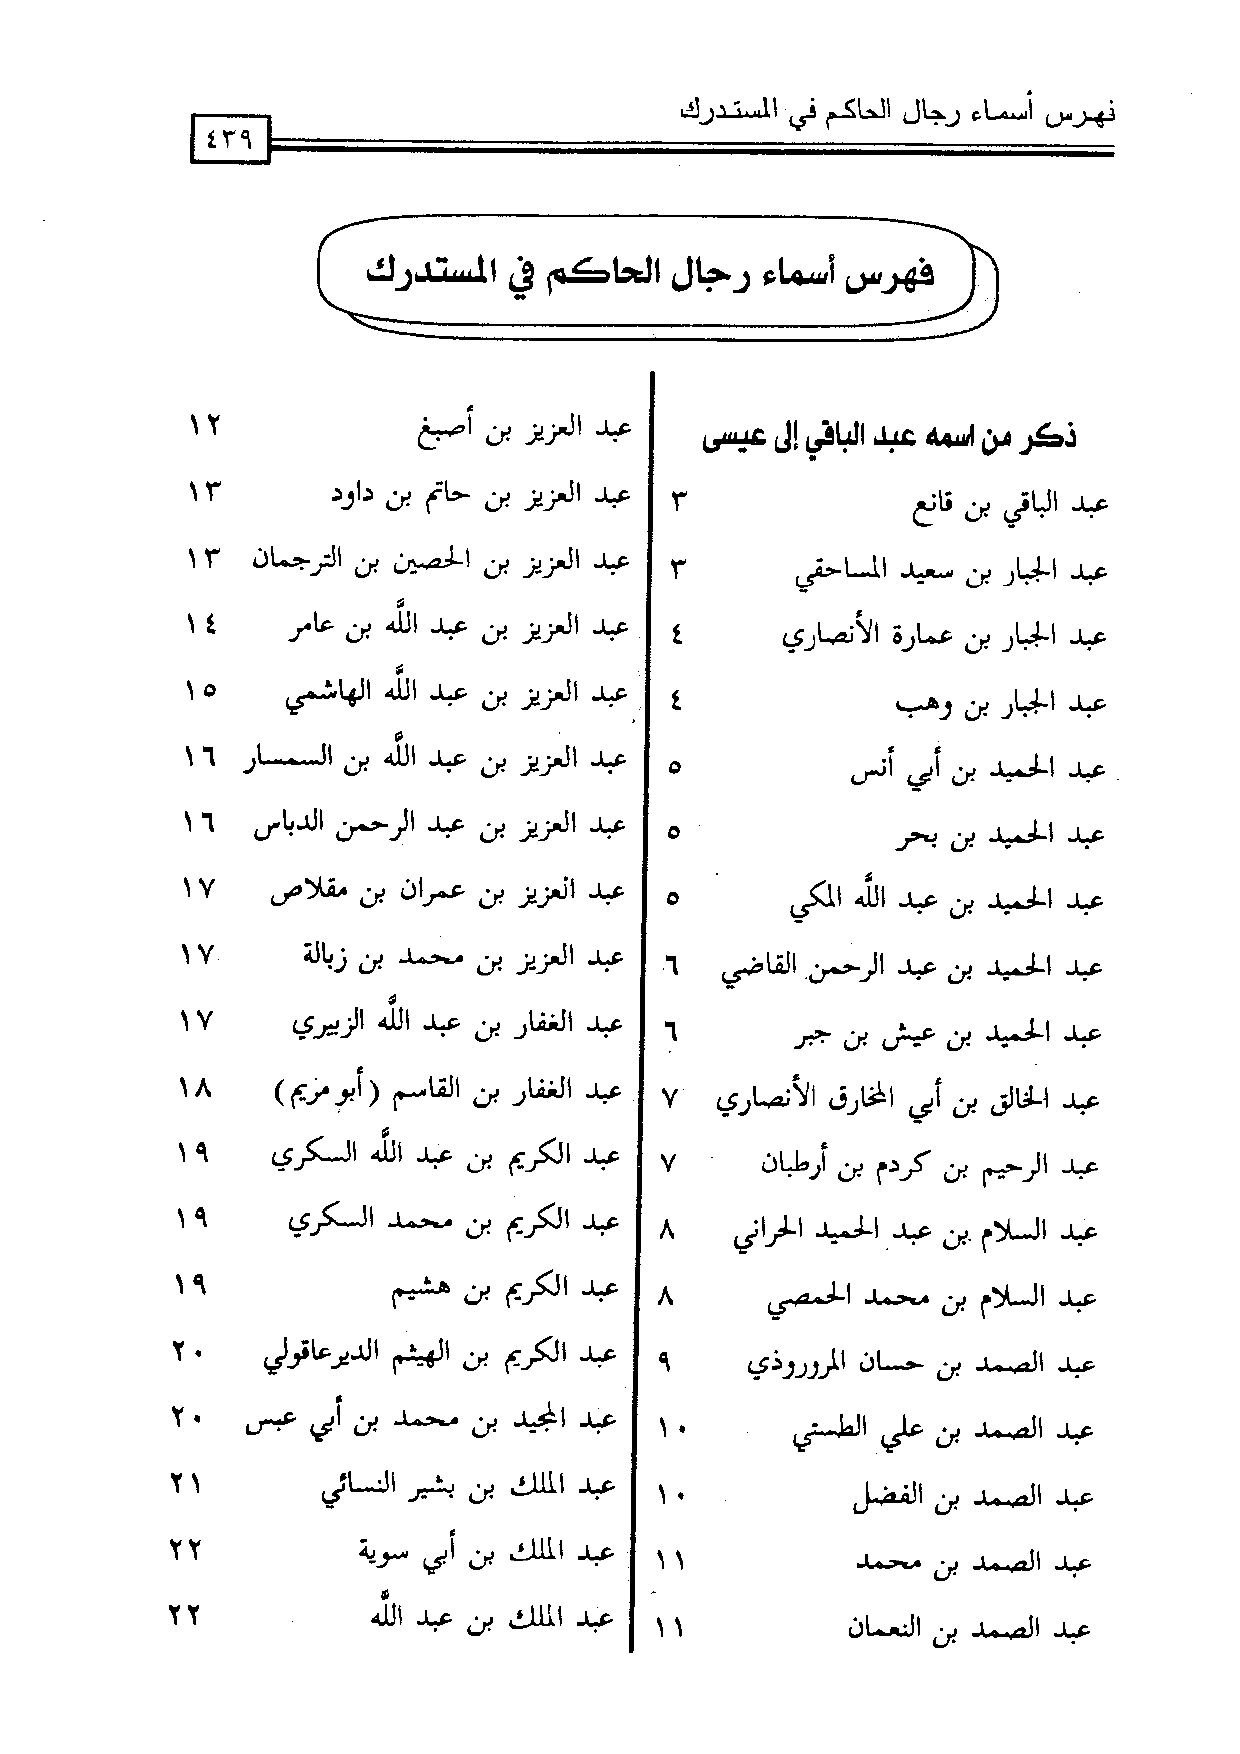 فهرس أسماء رجال الحاكم في المستدرك
٤٣٩
فهرس أسماء رجال الحاكم في المستدرك
ذكر من اسمه عبد الباقي إلى عيسى
عبد الباقي بن قانع ٣
عبد الجبار بن سعيد المساحقي ٣
عبد الجبار بن عمارة الأنصاري ٤
عبد الجبار بن وهب ٤
عبد الحميد بن أبي أنس ٥
عبد الحميد بن بحر ٥
عبد الحميد بن عبد اللَّه المكي ٥
عبد الحميد بن عبد الرحمن القاضي ٦
عبد الحميد بن عيش بن جبر ٦
عبد الخالق بن أبي المخارق الأنصاري ٧
عبد الرحيم بن كردم بن أرطبان ٧
عبد السلام بن عبد الحميد الحراني ٨
عبد السلام بن محمد الحمصي ٨
عبد الصمد بن حسان المروروذي ٩
عبد الصمد بن علي الطستي ١٠
عبد الصمد بن الفضل ١٠
عبد الصمد بن محمد ١١
عبد الصمد بن النعمان ١١
عبد العزيز بن أصبغ ١٢
عبد العزيز بن حاتم بن داود ١٣
عبد العزيز بن الحصين بن الترجمان ١٣
عبد العزيز بن عبد اللَّه بن عامر ١٤
عبد العزيز بن عبد اللَّه الهاشمي ١٥
عبد العزيز بن عبد اللَّه بن السمسار ١٦
عبد العزيز بن عبد الرحمن الدباس ١٦
عبد العزيز بن عمران بن مقلاص ١٧
عبد العزيز بن محمد بن زبالة ١٧
عبد الغفار بن عبد اللَّه الزبيري ١٧
عبد الغفار بن القاسم (أبو مريم) ١٨
عبد الكريم بن عبد اللَّه السكري ١٩
عبد الكريم بن محمد السكري ١٩
عبد الكريم بن هشيم ١٩
عبد الكريم بن الهيثم الديرعاقولي ٢٠
عبد المجيد بن محمد بن أبي عبس ٢٠
عبد الملك بن بشير النسائي ٢١
عبد الملك بن أبي سوية ٢٢
عبد الملك بن عبد اللَّه ٢٢